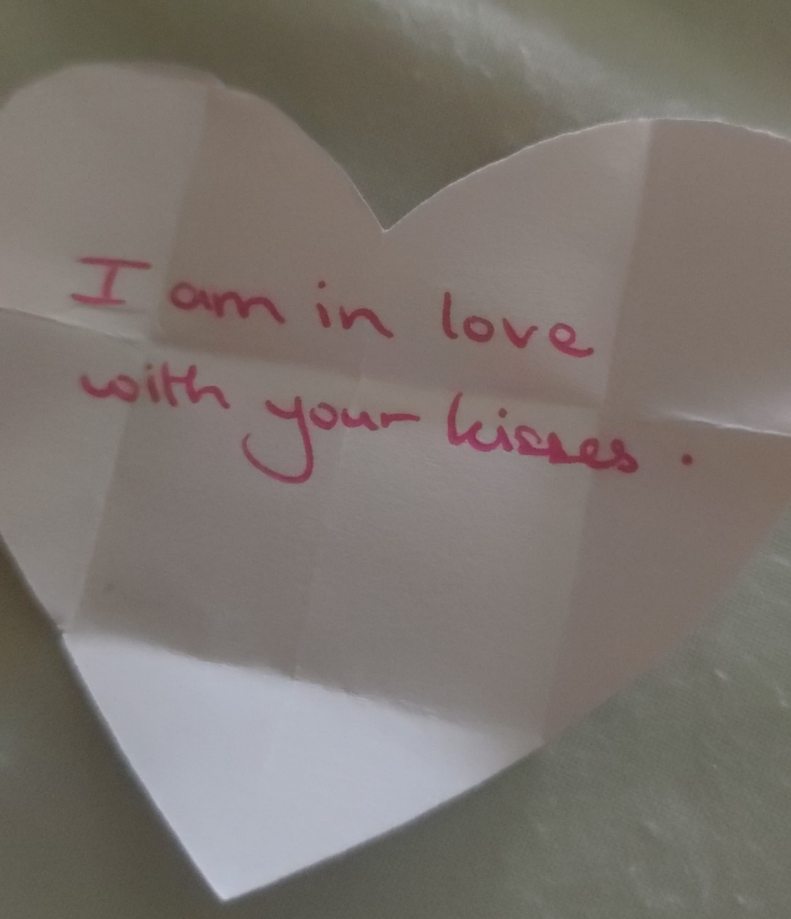 I am in love
with your kisses.